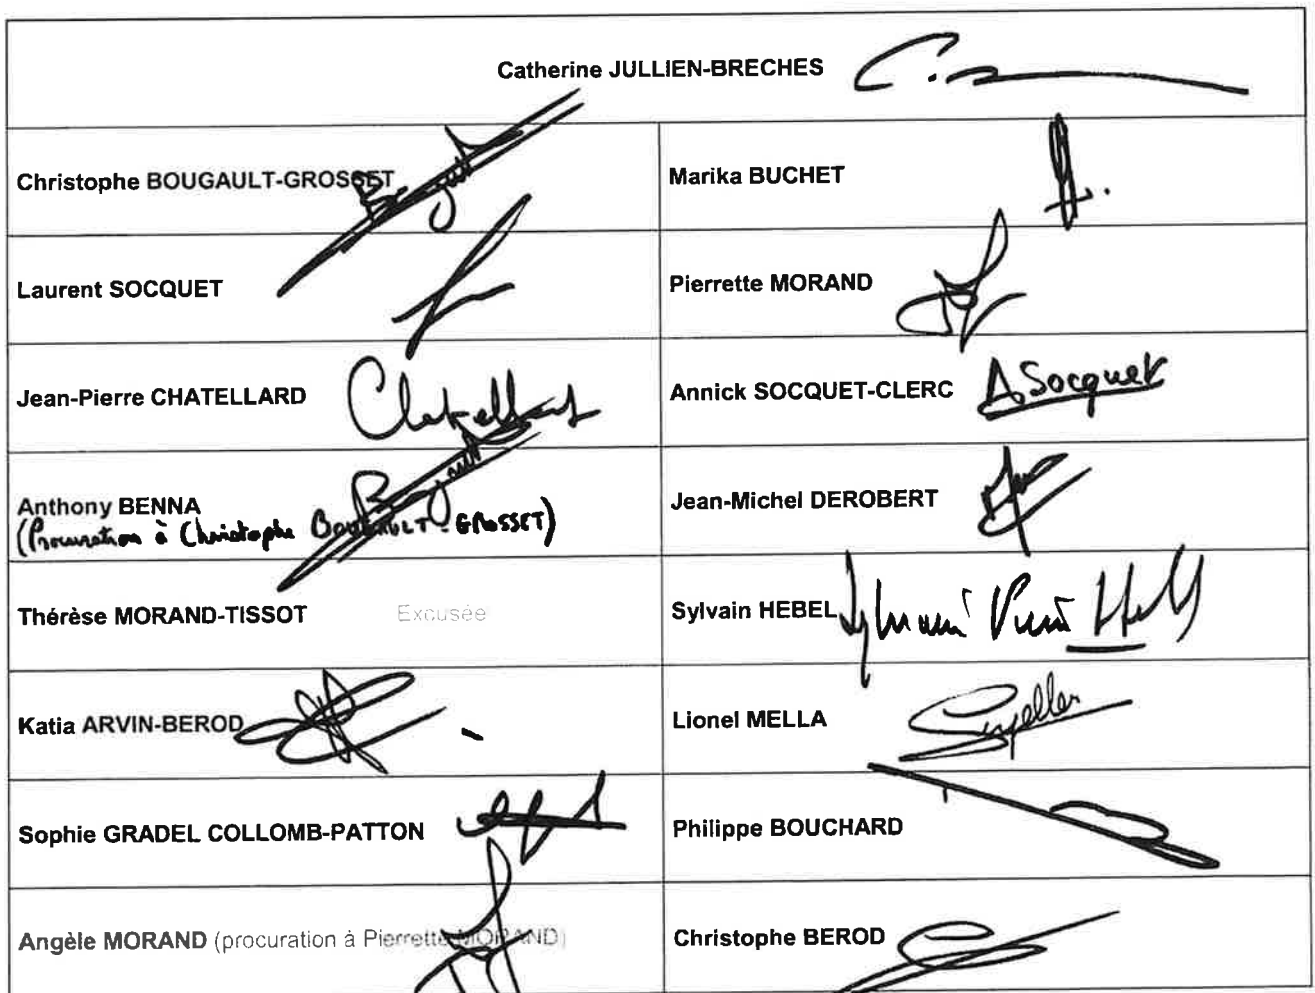 Catherine JULLIEN-BRECHES
Christophe BOUGAULT-GROSSET
Marika BUCHET
Laurent SOCQUET
Pierrette MORAND
Jean-Pierre CHATELLARD Chatellard
Annick SOCQUET-CLERC A Socquet
Anthony BENNA
(Procuration à Christophe BOUGAULT-GROSSET)
Jean-Michel DEROBERT
Thérèse MORAND-TISSOT Excusée
Sylvain HEBEL
Katia ARVIN-BEROD
Lionel MELLA
Sophie GRADEL COLLOMB-PATTON
Philippe BOUCHARD
Angèle MORAND (procuration à Pierrette MORAND)
Christophe BEROD